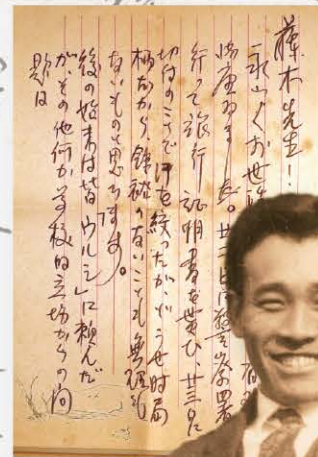 藤木先生！
永らくお世
ました。廿二日警察署
行って旅行証明書を貰ひ、廿三日に
切符のことで汗を絞ったが、どうせ時局
柄だから、餘裕のないことも無理も
ないものと思ひます。
後の始末は皆「ウルシ」に頼んだ
が、その他何か学校的立場からの問
題は